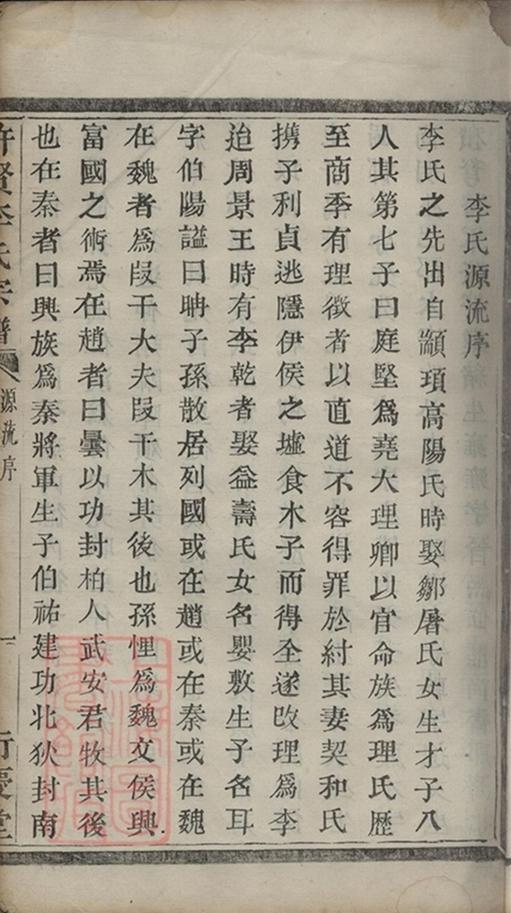 李氏源流序
李氏之先出自顓頊高陽氏時娶鄒屠氏女生才子八
人其第七子曰庭堅為堯大理卿以官命族為理氏歷
至商季有理徴者以直道不容得罪於紂其妻契和氏
擕子利貞逃隱伊侯之墟食木子而得全遂改理為李
迨周景王時有李乾者娶益壽氏女名嬰敷生子名耳
字伯陽謚曰聃子孫散居列國或在趙或在秦或在魏
在魏者為段干大夫段干木其後也孫悝為魏文侯興
富國之術焉在趙者曰曇以功封柏人武安君牧其後
也在秦者曰興族為秦將軍生子伯祐建功北狄封南
許賢李氏宗譜
源流序
一
行慶堂